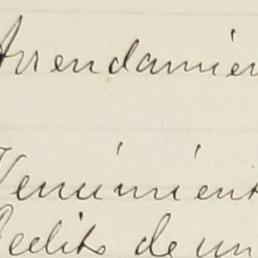 Arrendamien
Vencimient
Redito de un